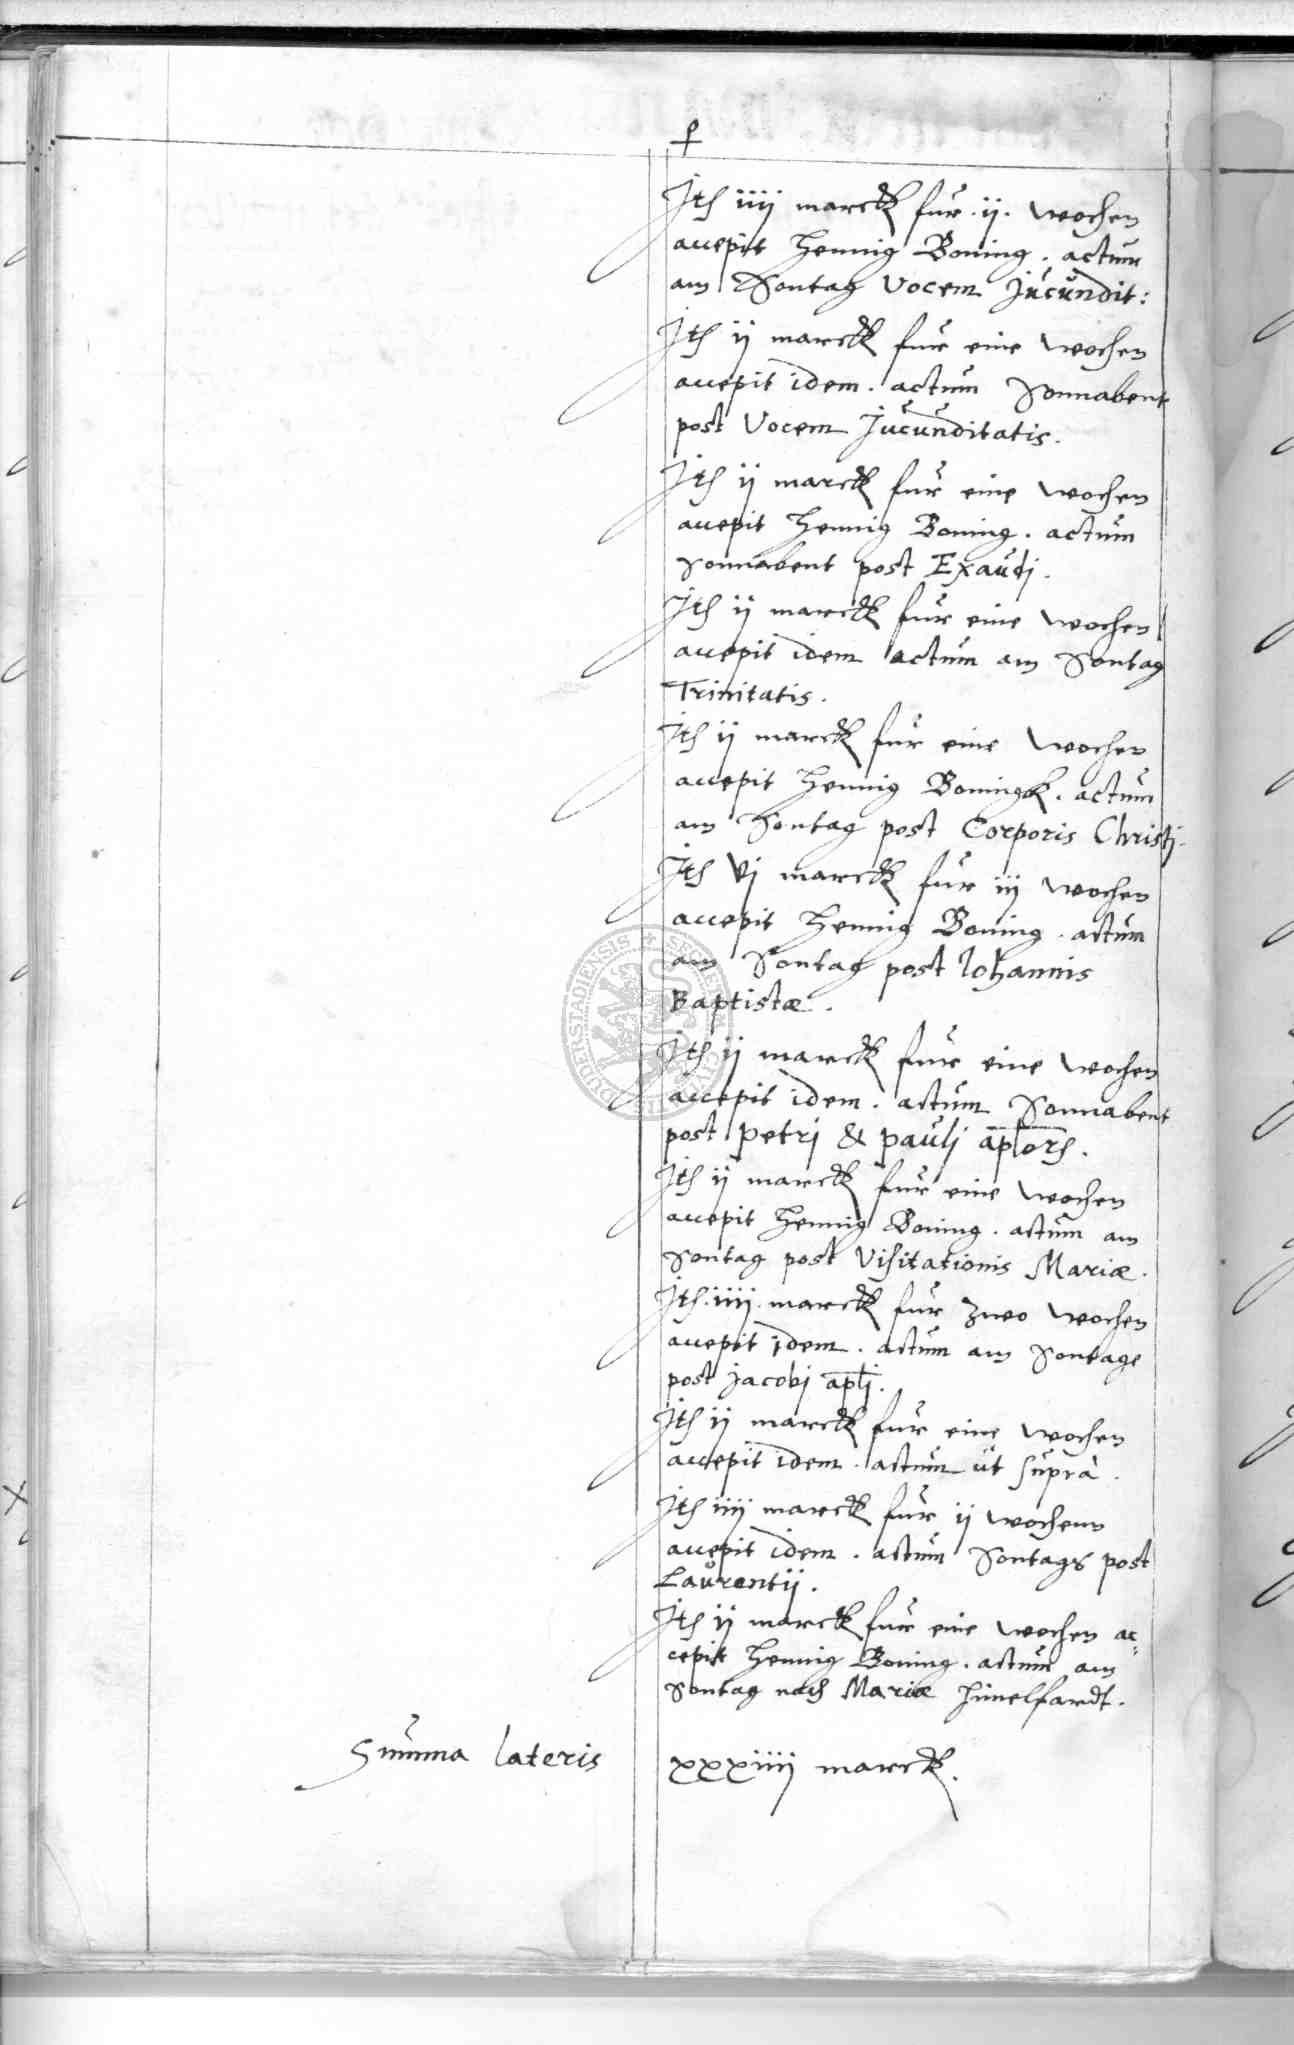 Jtem iiij marck fur .ij. wochen
accepit Hennig Boning . actum
am Sontag Vocem Jucundit:
Jtem ij marck fur eine wochen
accepit idem . actum Sonnabent
post Vocem Jucunditatis.
Jtem ij marck fur eine wochen
accepit Hennig Boning . actum
Sonnabent post Exaudj.
Jtem ij marck fur eine wochen
accepit idem actum am Sontag
Trinitatis.
Jtem ij marck fur eine wochen
accepit Hennig Boningk . actum
am Sontag post Corporis Christj.
Jtem vj marck fur iij wochen
accepit Hennig Boning . actum
am Sontag post Iohannis
Baptistæ.
Jtem ij marck fur eine wochen
accepit idem . actum Sonnabent
post Petrj & Paulj aplorum.
Jtem ij marck fur eine wochen
accepit Hennig Boning . actum am
Sontag post Visitationis Mariæ.
Jtem .iiij. marck fur zwo wochen
accepit idem . actum am Sontage
post Jacobj aplj.
Jtem ij marck fur eine wochen
accepit idem . actum ut supra.
Jtem iiij marck fur ij wochenn
accepit idem . actum Sontags post
Laurentij.
Jtem ij marck fur eine wochen ac=
cepit Hennig Boning . actum am
Sontag nach Mariæ Himelfardt.
Summa lateris xxxiiij marck.
SECRETUM CIVITATIS DUDERSTADIENSIS